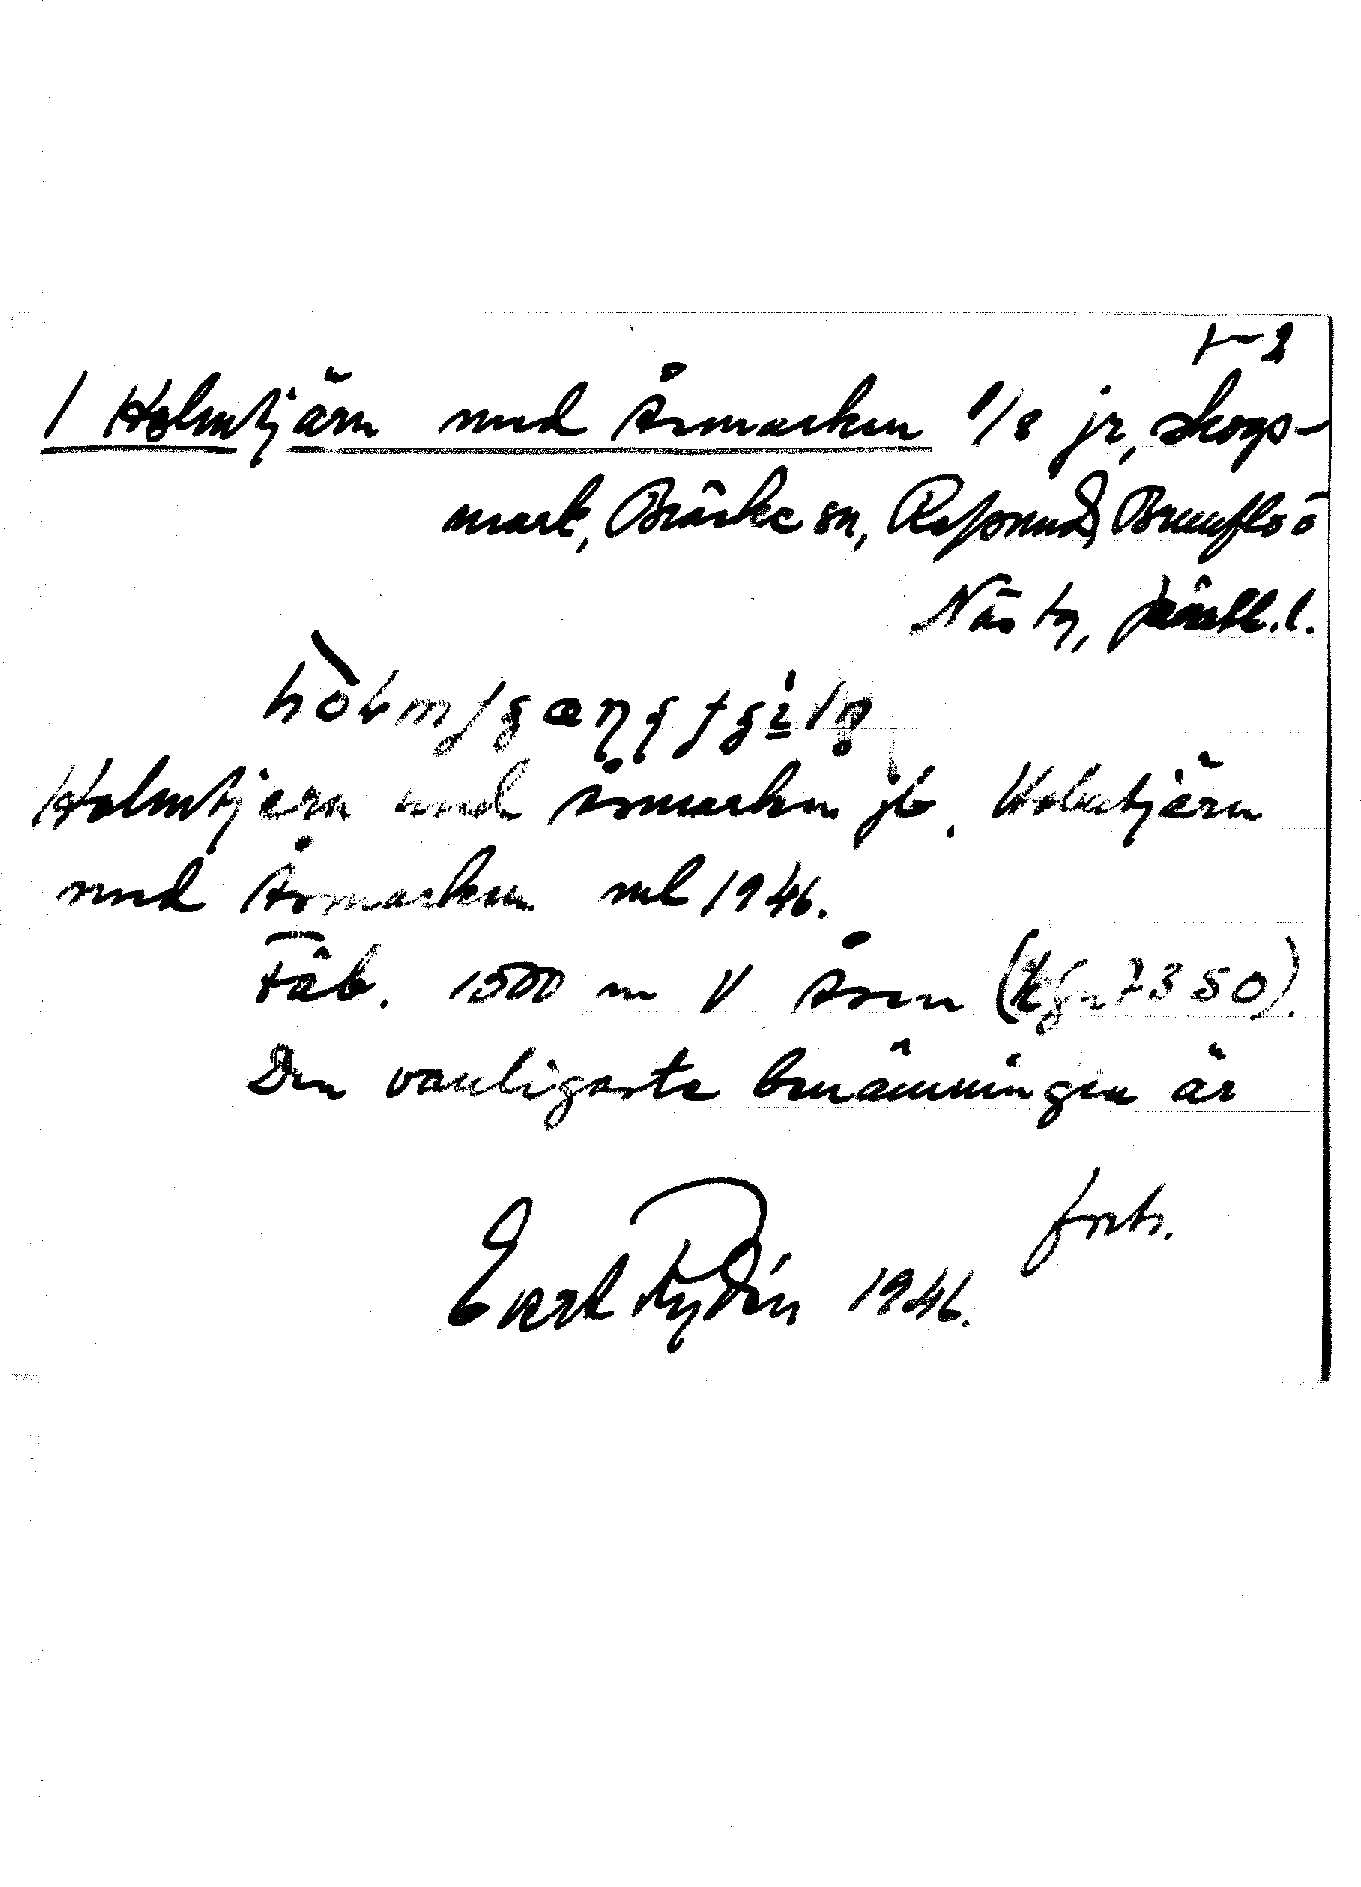 1-2
1 Holmtjärn med Åsmarken 1/8 jr, skogs-
mark, Bräcke sn, Refsunds, Brunflo o
Näs tg, Jämtl. l.
Holmtjern med Åsmarken jb. Holmtjärn
med Åsmarken ml 1946.
Fäb. 1500 m V Åsen (7350).
Den vanligaste benämningen är
forts.
Evert Rydén 1946.